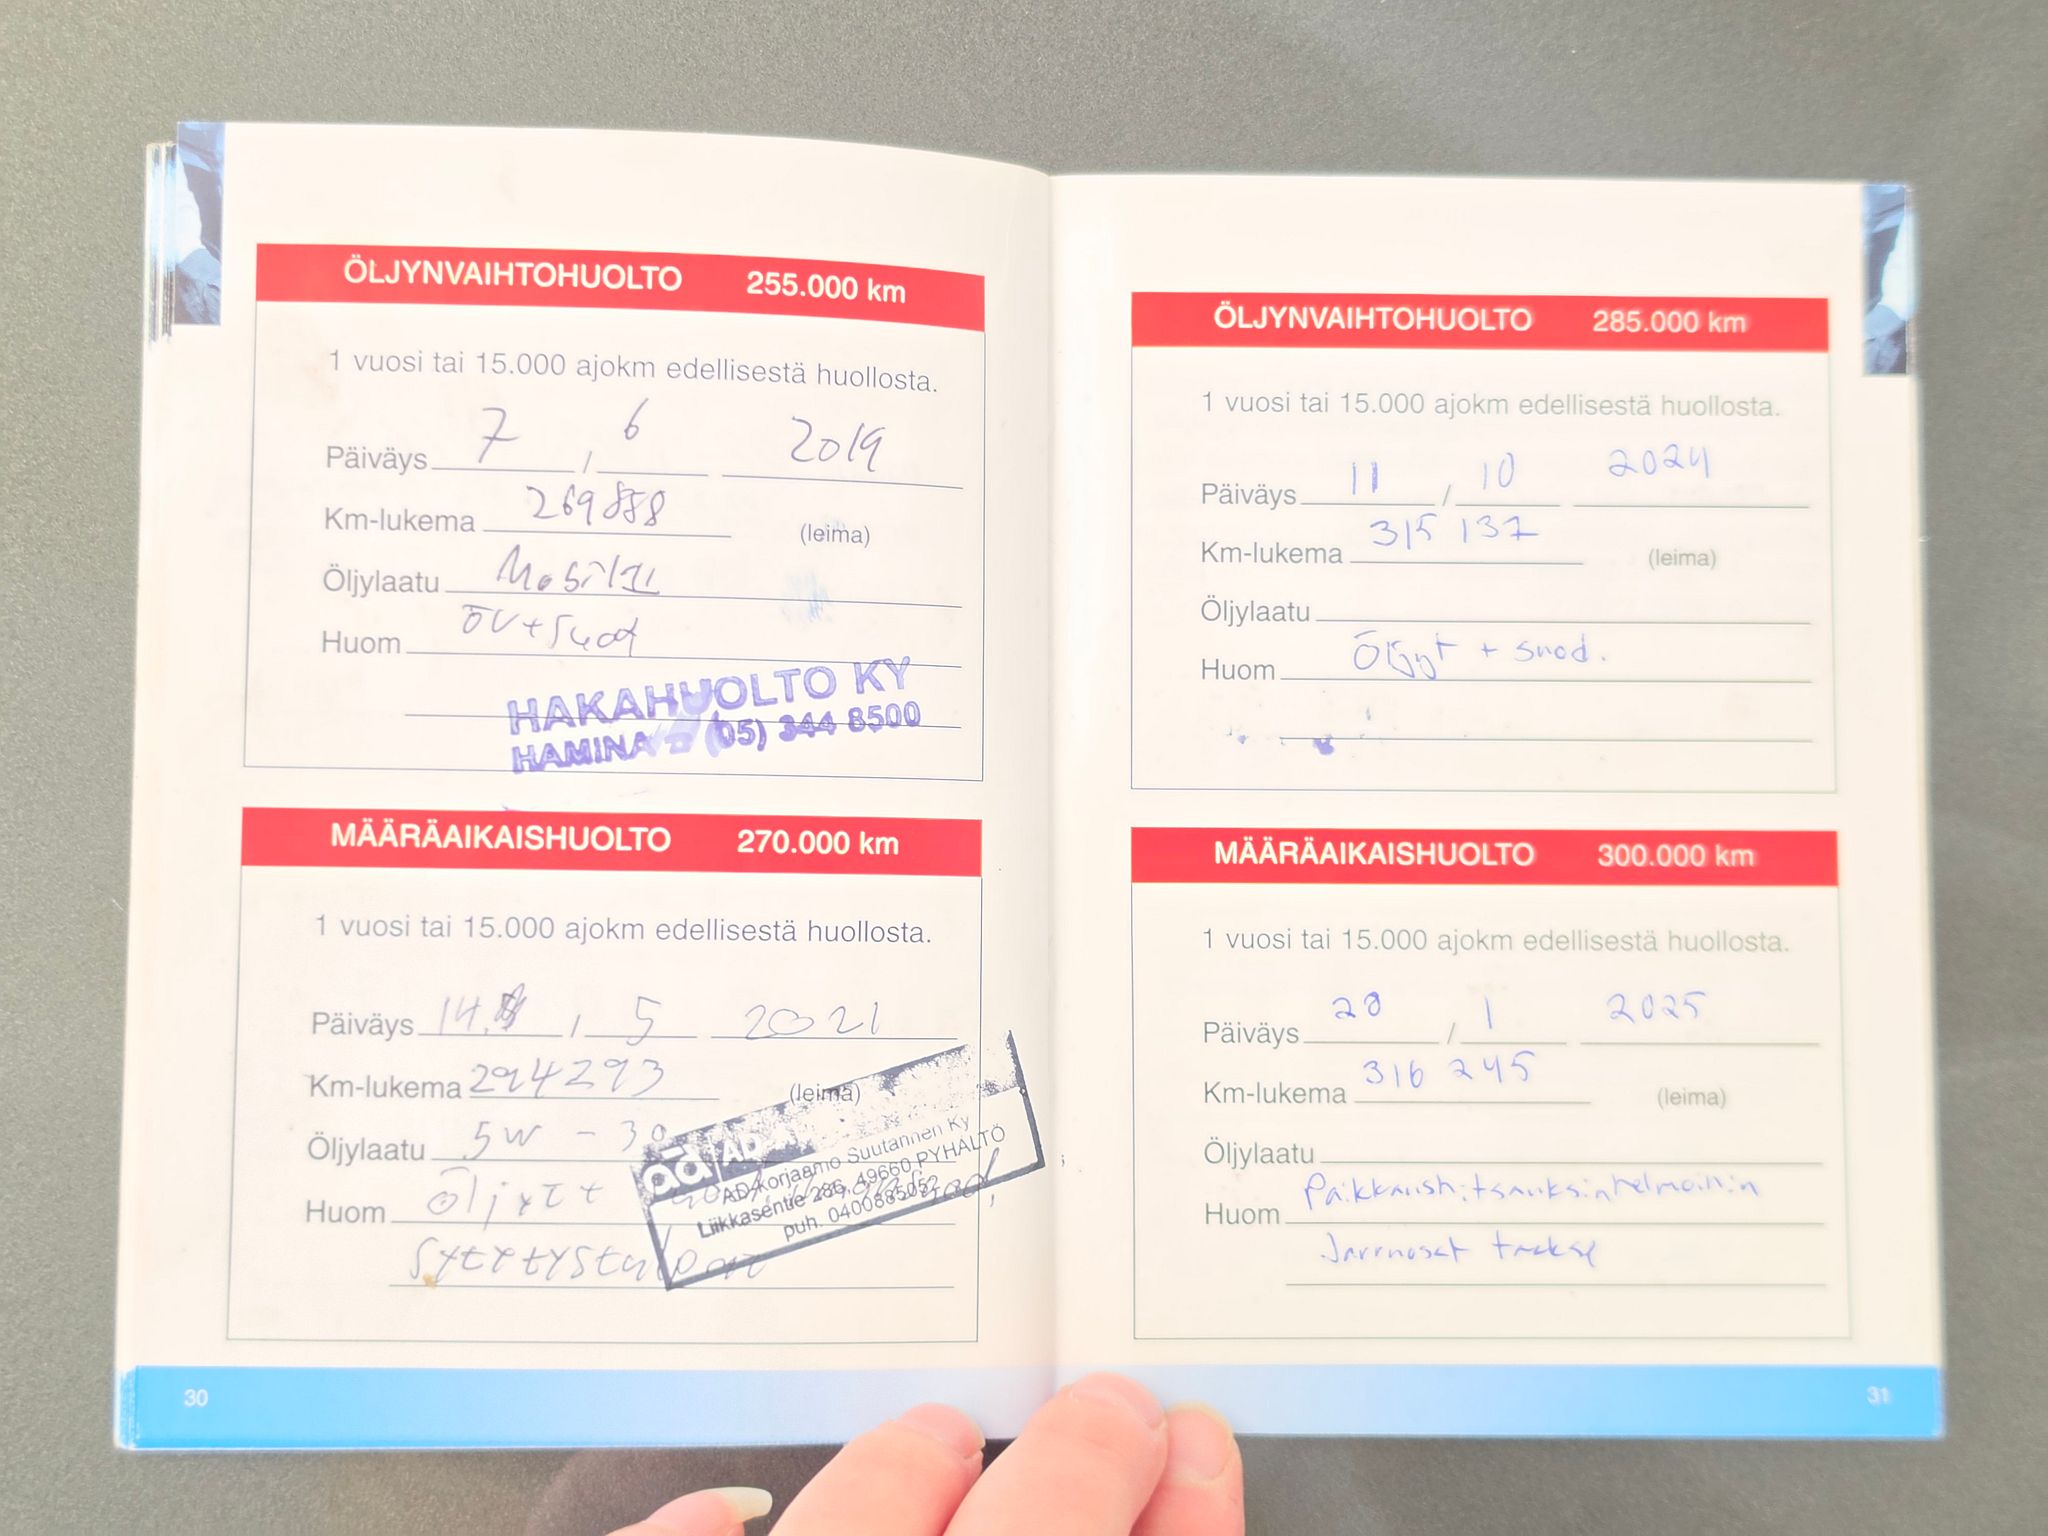 ÖLJYNVAIHTOHUOLTO 255.000 km
1 vuosi tai 15.000 ajokm edellisestä huollosta.
Päiväys 7 / 6 2019
Km-lukema 269888 (leima)
Öljylaatu Mobil 1
Huom öv + suod
HAKAHUOLTO KY
HAMINA (05) 344 8500
MÄÄRÄAIKAISHUOLTO 270.000 km
1 vuosi tai 15.000 ajokm edellisestä huollosta.
Päiväys 14. / 5 2021
Km-lukema 294293 (leima)
Öljylaatu 5W - 30
Huom Öljyt +
Sytytystulpat
ad AD
AD-Korjaamo Suutarinen Ky
Liikkasentie 286, 49660 PYHÄLTÖ
puh. 0400885052
30
ÖLJYNVAIHTOHUOLTO 285.000 km
1 vuosi tai 15.000 ajokm edellisestä huollosta.
Päiväys 11 / 10 2024
Km-lukema 315 137 (leima)
Öljylaatu
Huom Öljyt + suod.
MÄÄRÄAIKAISHUOLTO 300.000 km
1 vuosi tai 15.000 ajokm edellisestä huollosta.
Päiväys 20 / 1 2025
Km-lukema 316 245 (leima)
Öljylaatu
Huom Paikkaushitsauksin helmoihin
Jarruosat taakse
31